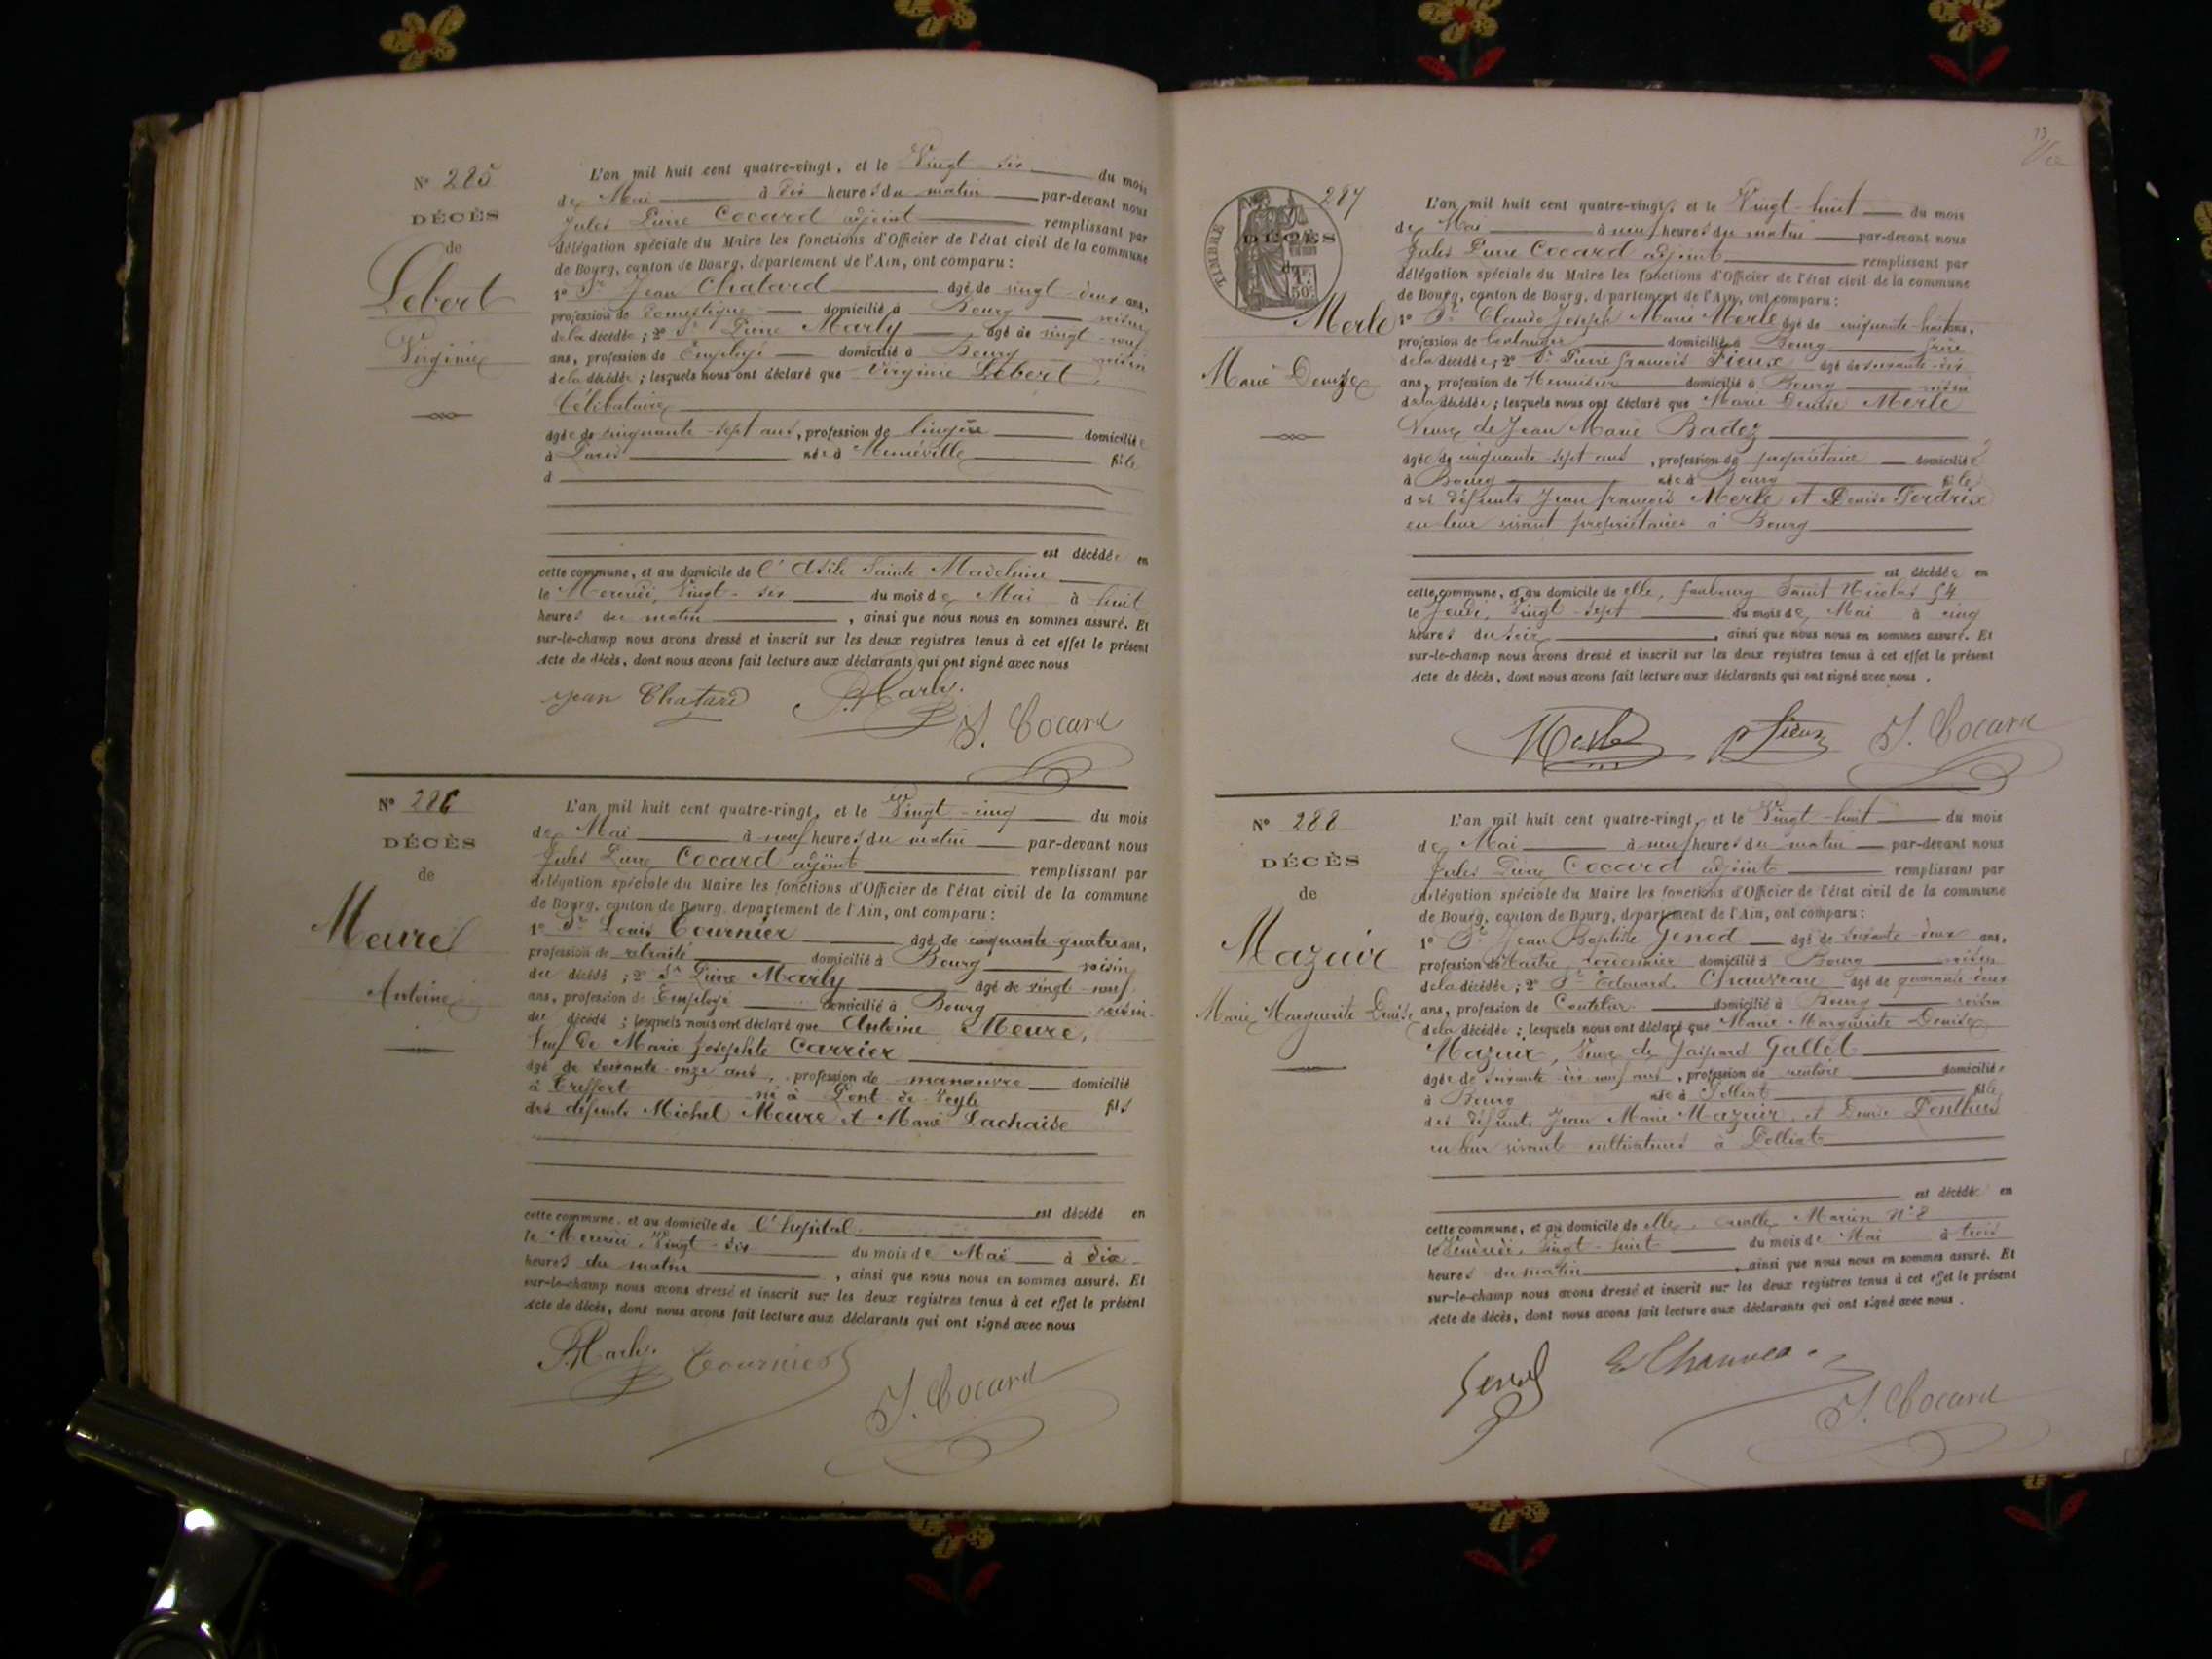 N° 285
DÉCÈS
de
Lebert
Virginie
L'an mil huit cent quatre-vingt, et le Vingt-six du mois
de Mai à dix heures du matin par-devant nous
Jules Pierre Cocard adjoint remplissant par
délégation spéciale du Maire les fonctions d'Officier de l'état civil de la commune
de Bourg, canton de Bourg, département de l'Ain, ont comparu :
1° Sr Jean Chatard âgé de vingt-deux ans,
profession de domestique domicilié à Bourg voisin
de la décédée ; 2° Sr Pierre Marly âgé de vingt-neuf
ans, profession de Employé domicilié à Bourg voisin
de la décédée ; lesquels nous ont déclaré que Virginie Lebert,
Célibataire
âgée de cinquante-sept ans, profession de lingère domiciliée
à Paris née à fille
d
est décédée en
cette commune, et au domicile de l'Asile Sainte Madeleine
le Mercredi, Vingt-six du mois de Mai à huit
heures du matin, ainsi que nous nous en sommes assuré. Et
sur-le-champ nous avons dressé et inscrit sur les deux registres tenus à cet effet le présent
Acte de décès, dont nous avons fait lecture aux déclarants qui ont signé avec nous
Jean Chatard P. Marly. J. Cocard
N° 286
DÉCÈS
de
Meure
Antoine
L'an mil huit cent quatre-vingt, et le Vingt-cinq du mois
de Mai à neuf heures du matin par-devant nous
Jules Pierre Cocard adjoint remplissant par
délégation spéciale du Maire les fonctions d'Officier de l'état civil de la commune
de Bourg, canton de Bourg, département de l'Ain, ont comparu :
1° Sr Louis Tournier âgé de cinquante-quatre ans,
profession de retraité domicilié à Bourg voisin
du décédé ; 2° Sr Pierre Marly âgé de vingt-neuf
ans, profession de Employé domicilié à Bourg voisin
du décédé ; lesquels nous ont déclaré que Antoine Meure,
Veuf de Marie Josephte Carrier
âgé de soixante-onze ans, profession de manœuvre domicilié
à Treffort né à Pont-de-Veyle fils
des défunts Michel Meure et Marie Lachaise
est décédé en
cette commune, et au domicile de l'hôpital
le Mercredi, Vingt-six du mois de Mai à dix
heures du matin, ainsi que nous nous en sommes assuré. Et
sur-le-champ nous avons dressé et inscrit sur les deux registres tenus à cet effet le présent
Acte de décès, dont nous avons fait lecture aux déclarants qui ont signé avec nous
P. Marly. Tournier J. Cocard
73
TIMBRE
1 F.
50 c.
287
DÉCÈS
de
Merle
Marie Denise
L'an mil huit cent quatre-vingt, et le Vingt-huit du mois
de Mai à neuf heures du matin par-devant nous
Jules Pierre Cocard adjoint remplissant par
délégation spéciale du Maire les fonctions d'Officier de l'état civil de la commune
de Bourg, canton de Bourg, département de l'Ain, ont comparu :
1° Sr Claude Joseph Marie Merle âgé de cinquante-huit ans,
profession de boulanger domicilié à Bourg frère
de la décédée ; 2° Sr Pierre françois Fieux âgé de soixante-dix
ans, profession de Menuisier domicilié à Bourg voisin
de la décédée ; lesquels nous ont déclaré que Marie Denise Merle
Veuve de Jean Marie Badez
âgée de cinquante-sept ans, profession de propriétaire domiciliée
à Bourg née à Bourg fille
des défunts Jean françois Merle et Denise Perdrix
en leur vivant propriétaires à Bourg
est décédée en
cette commune, et au domicile de elle, faubourg Saint Nicolas 54
le Jeudi, Vingt-sept du mois de Mai à cinq
heures du soir, ainsi que nous nous en sommes assuré. Et
sur-le-champ nous avons dressé et inscrit sur les deux registres tenus à cet effet le présent
Acte de décès, dont nous avons fait lecture aux déclarants qui ont signé avec nous.
Merle P Fieux J. Cocard
N° 288
DÉCÈS
de
Mazuir
Marie Marguerite Denise
L'an mil huit cent quatre-vingt, et le Vingt-huit du mois
de Mai à neuf heures du matin par-devant nous
Jules Pierre Cocard adjoint remplissant par
délégation spéciale du Maire les fonctions d'Officier de l'état civil de la commune
de Bourg, canton de Bourg, département de l'Ain, ont comparu :
1° Sr Jean Baptiste Genod âgé de soixante-deux ans,
profession de Maître cordonnier domicilié à Bourg voisin
de la décédée ; 2° Sr Edouard Chauveau âgé de quarante-deux
ans, profession de Coutelier domicilié à Bourg voisin
de la décédée ; lesquels nous ont déclaré que Marie Marguerite Denise
Mazuir, Veuve de Gaspard Gallet
âgée de soixante-dix-neuf ans, profession de rentière domiciliée
à Bourg née à Polliat fille
des défunts Jean Marie Mazuir, et Denise Ponthus
en leur vivant cultivateurs à Polliat
est décédée en
cette commune, et au domicile de elle, ruelle Marion N° 8
le Vendredi, Vingt-huit du mois de Mai à trois
heures du matin, ainsi que nous nous en sommes assuré. Et
sur-le-champ nous avons dressé et inscrit sur les deux registres tenus à cet effet le présent
Acte de décès, dont nous avons fait lecture aux déclarants qui ont signé avec nous.
Genod E Chauveau J. Cocard